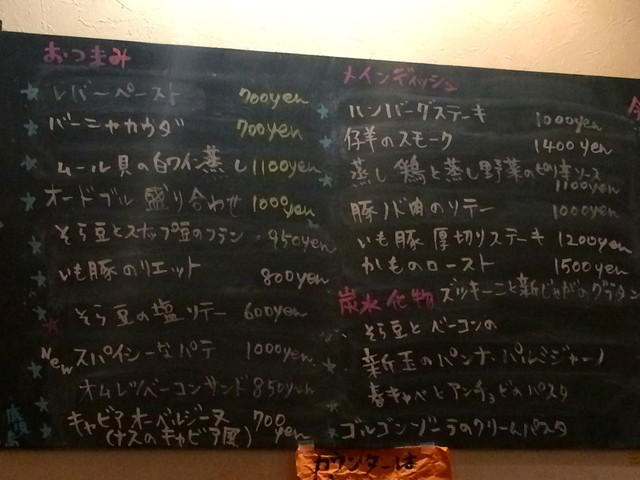 おつまみ
レバーペースト 700yen
バーニャカウダ 700yen
ムール貝の白ワイン蒸し 1100yen
オードブル盛り合わせ 1000yen
そら豆とスナップ豆のフラン 950yen
いも豚のリエット 800yen
そら豆の塩ソテー 600yen
New スパイシーなパテ 1000yen
オムレツベーコンサンド 850yen
キャビアオーベルジーヌ 700yen
(ナスのキャビア風)
メインディッシュ
ハンバーグステーキ 1000yen
仔羊のスモーク 1400yen
蒸し鶏と蒸し野菜のピリ辛ソース
1100yen
豚ノド肉のソテー 1000yen
いも豚厚切りステーキ 1200yen
かものロースト 1500yen
ズッキーニと新じゃがのグラタン
炭水化物
そら豆とベーコンの
新玉のパンナ、パルミジャーノ
春キャベとアンチョビのパスタ
ゴルゴンゾーラのクリームパスタ
カウンターは